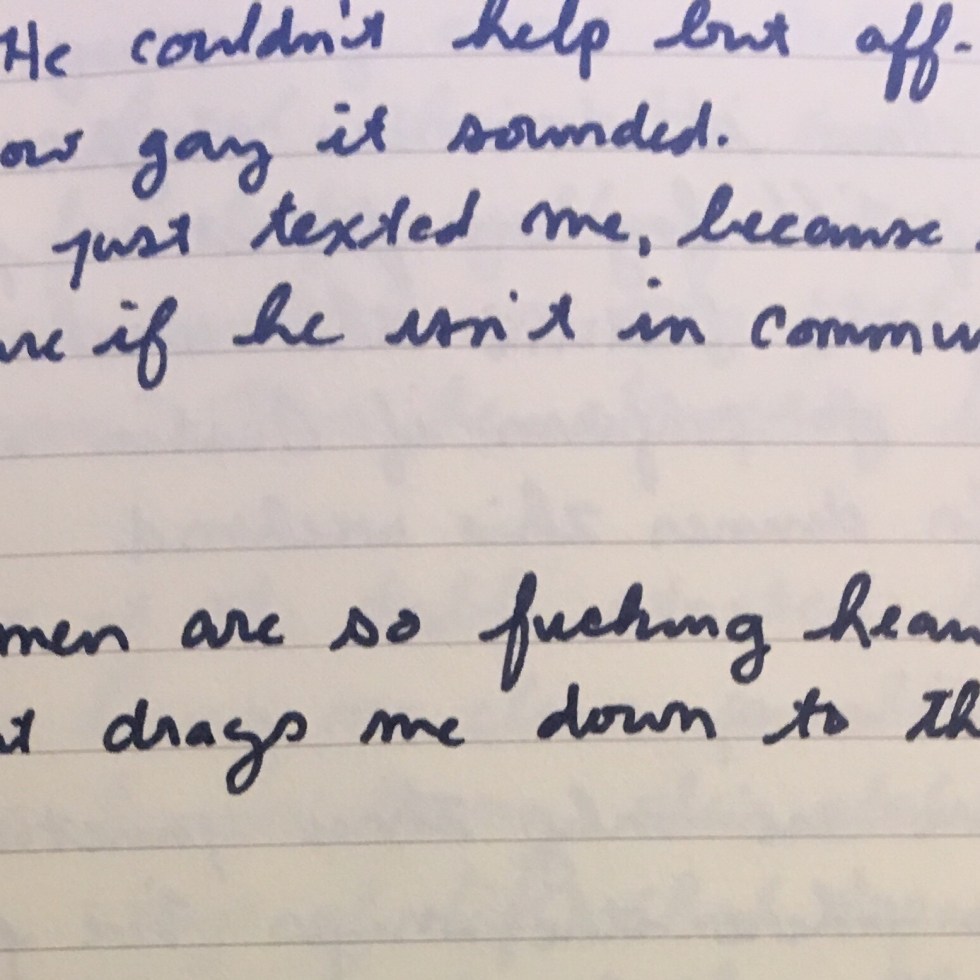 He couldn't help but aff-
ow gay it sounded.
just texted me, because
if he isn't in commu
men are so fucking
drags me down to th